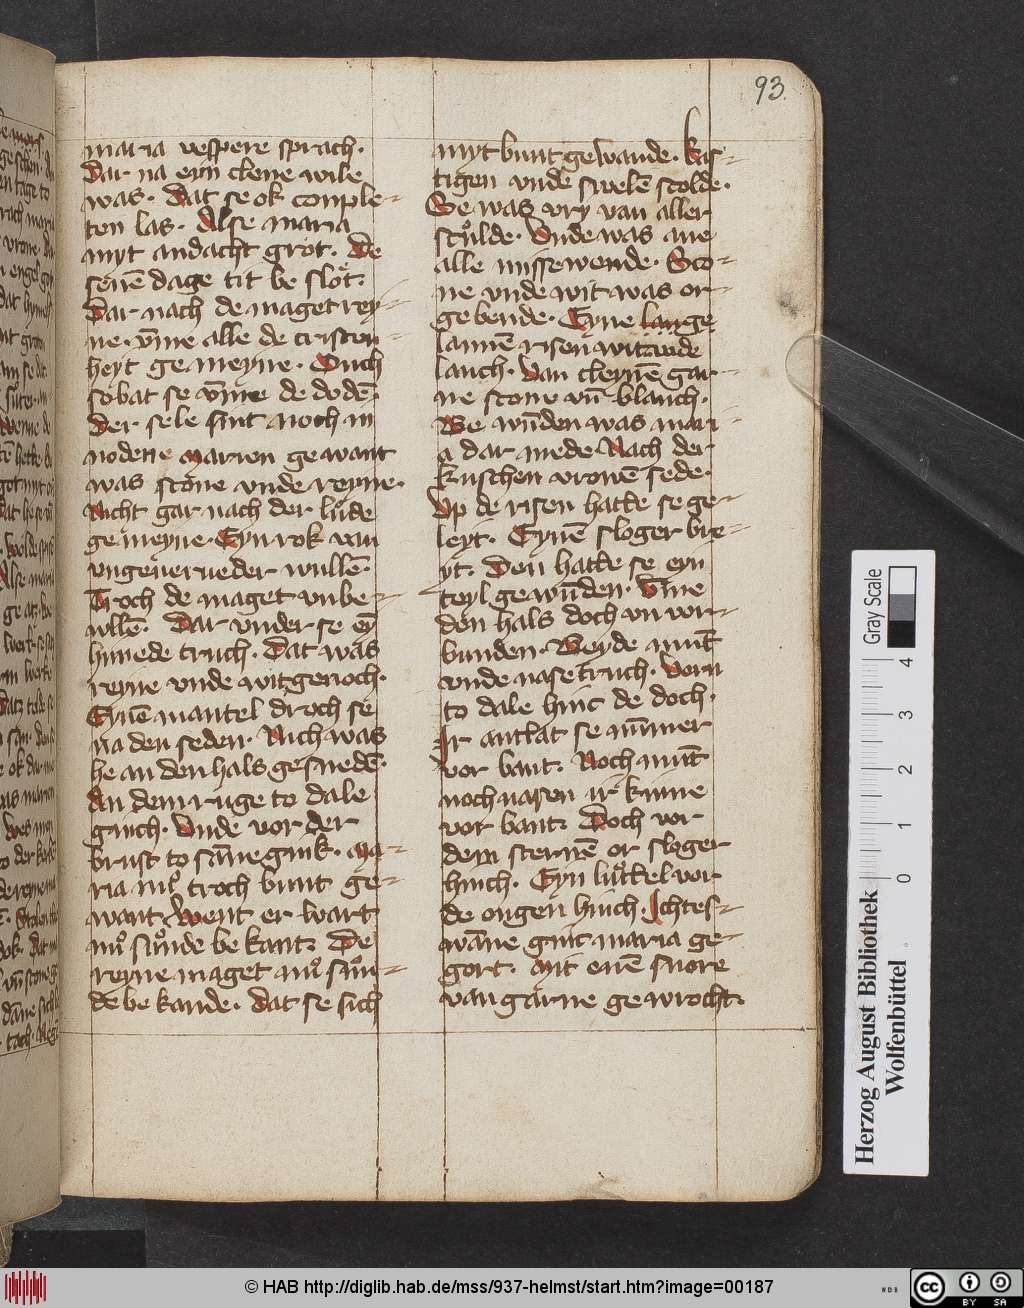 93.
maria vespere sprach.
Dar na eyn cleyne wile
was. Dat se ok comple-
ten las. Alse maria
myt andacht grot. De
seuē dage tit be slot.
Dar nach de maget rey-
ne. vm̄e alle de cristen-
heyt ge meyne. Ouch
so bat se vm̄e de dodē.
Der sele sint noch in
noden e marien ge want
was scone vnde reyne.
Nicht gar nach der lude
ge meyne. Eyn rok van
vngeuerueder wullē.
Troch de maget vn be-
wllē. Dar vnder se eȳ
himede truch. Dat was
reyne vnde wit genoch.
Eynē mantel droch se
na den seden. Nich was
he an den hals gesnedē.
An dem ruge to dale
ginch. Vnde vor der
brust to sām̄e gink. Ma-
ria nicht troch bunt ge-
want. Went er wart
ny sunde be kant. De
reyne maget ny sun-
de be kande. Dat se sich
myt bunt gewande. Kas-
tigen vnde swelē scolde.
Se was vry van aller
sculde. Vnde was ane
alle missewende. Sco-
ne vnde wit was or
ge bende. Eyne lange
lanne risen wit ande
lanch. Van cleynē gar-
ne scone vn̄ blanch.
Be wu̅den was mari-
a dar mede Nach der
kuschen vrowē sede.
Vp de risen hatte se ge-
leyt. Eynē sloger bre-
yt. Den hatte se eyn
teyl ge wu̅den. Vm̄e
den hals doch vn vor-
bunden. Beyde mu̅t
vnde nase truch. Vorn
to dale hinc de doch.
Ir antlat se nu̅mer
vor bant. Noch mu̅t
noch nasen ir kinne
vor bant. Doch vor
dem sternē or sloger
hinch. Eyn luttel vor
de ougen hinch. Ichtes-
wāne ginc maria ge-
gort. Mit enē snore
van garne ge wrocht.
Gray Scale
4
3
2
1
0
Herzog August Bibliothek
Wolfenbüttel
© HAB http://diglib.hab.de/mss/937-helmst/start.htm?image=00187
WDB
cc
BY SA